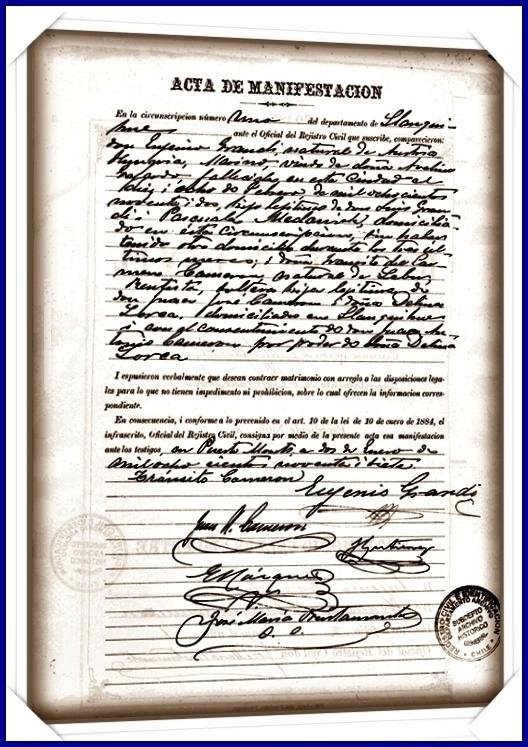 ACTA DE MANIFESTACION
En la circunscripcion número Una del departamento de Llanqui-
hue ante el Oficial del Rejistro Civil que suscribe, comparecieron:
don Eugenio Grandi, natural de Austria
Hungria, Marino, viudo de doña Avelina
fallecida en esta Ciudad el
diez i ocho de Febrero de mil ochocientos
noventa i dos, hijo lejitimo de don Luis Gran
di i Pascuala domicilia
do en esta circunscripcion sin haber
tenido otro domicilio durante los tres úl
timos meses, i doña Transito del Car
men Cameron natural de Calbu
Rentista, soltera hija lejitima de
don Juan José Cameron i doña Delina
Lorca, domiciliados en Llanquihue
i con el consentimiento de don Juan An
tonio Cameron por poder de doña Delina
Lorca
I espusieron verbalmente que desean contraer matrimonio con arreglo a las disposiciones lega-
les para lo que no tienen impedimento ni prohibicion, sobre lo cual ofrecen la informacion corres-
pondiente.
En consecuencia, i conforme a lo prevenido en el art. 10 de la lei de 10 de enero de 1884, el
infrascrito, Oficial del Rejistro Civil, consigna por medio de la presente acta esa manifestacion
ante los testigos, en Puerto Montt, a dos de Enero de
mil ocho cientos noventa i siete
Tránsito Cameron
Eugenio Grandi
Juan A. Cameron
Gutierrez
E Márquez
José María Bustamante
O. C.
Oficial del Rejistro Civil don
REGISTRO CIVIL E IDENTIFICACION
SUBDEPTO
ARCHIVO
HISTORICO
GENERAL
CHILE